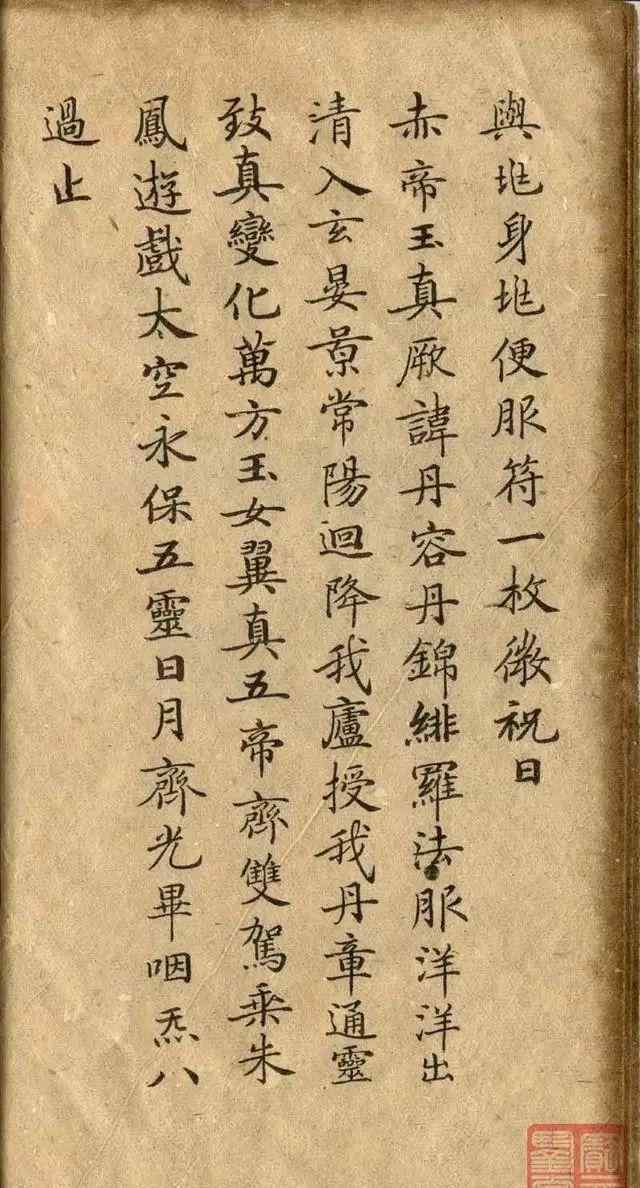 與垗身垗便服符一枚微祝曰
赤帝玉真厥諱丹容丹錦緋羅法服洋洋出
清入玄晏景常陽迴降我廬授我丹章通靈
致真變化萬方玉女翼真五帝齊雙駕乘朱
鳳遊戲太空永保五靈日月齊光畢咽炁八
過止